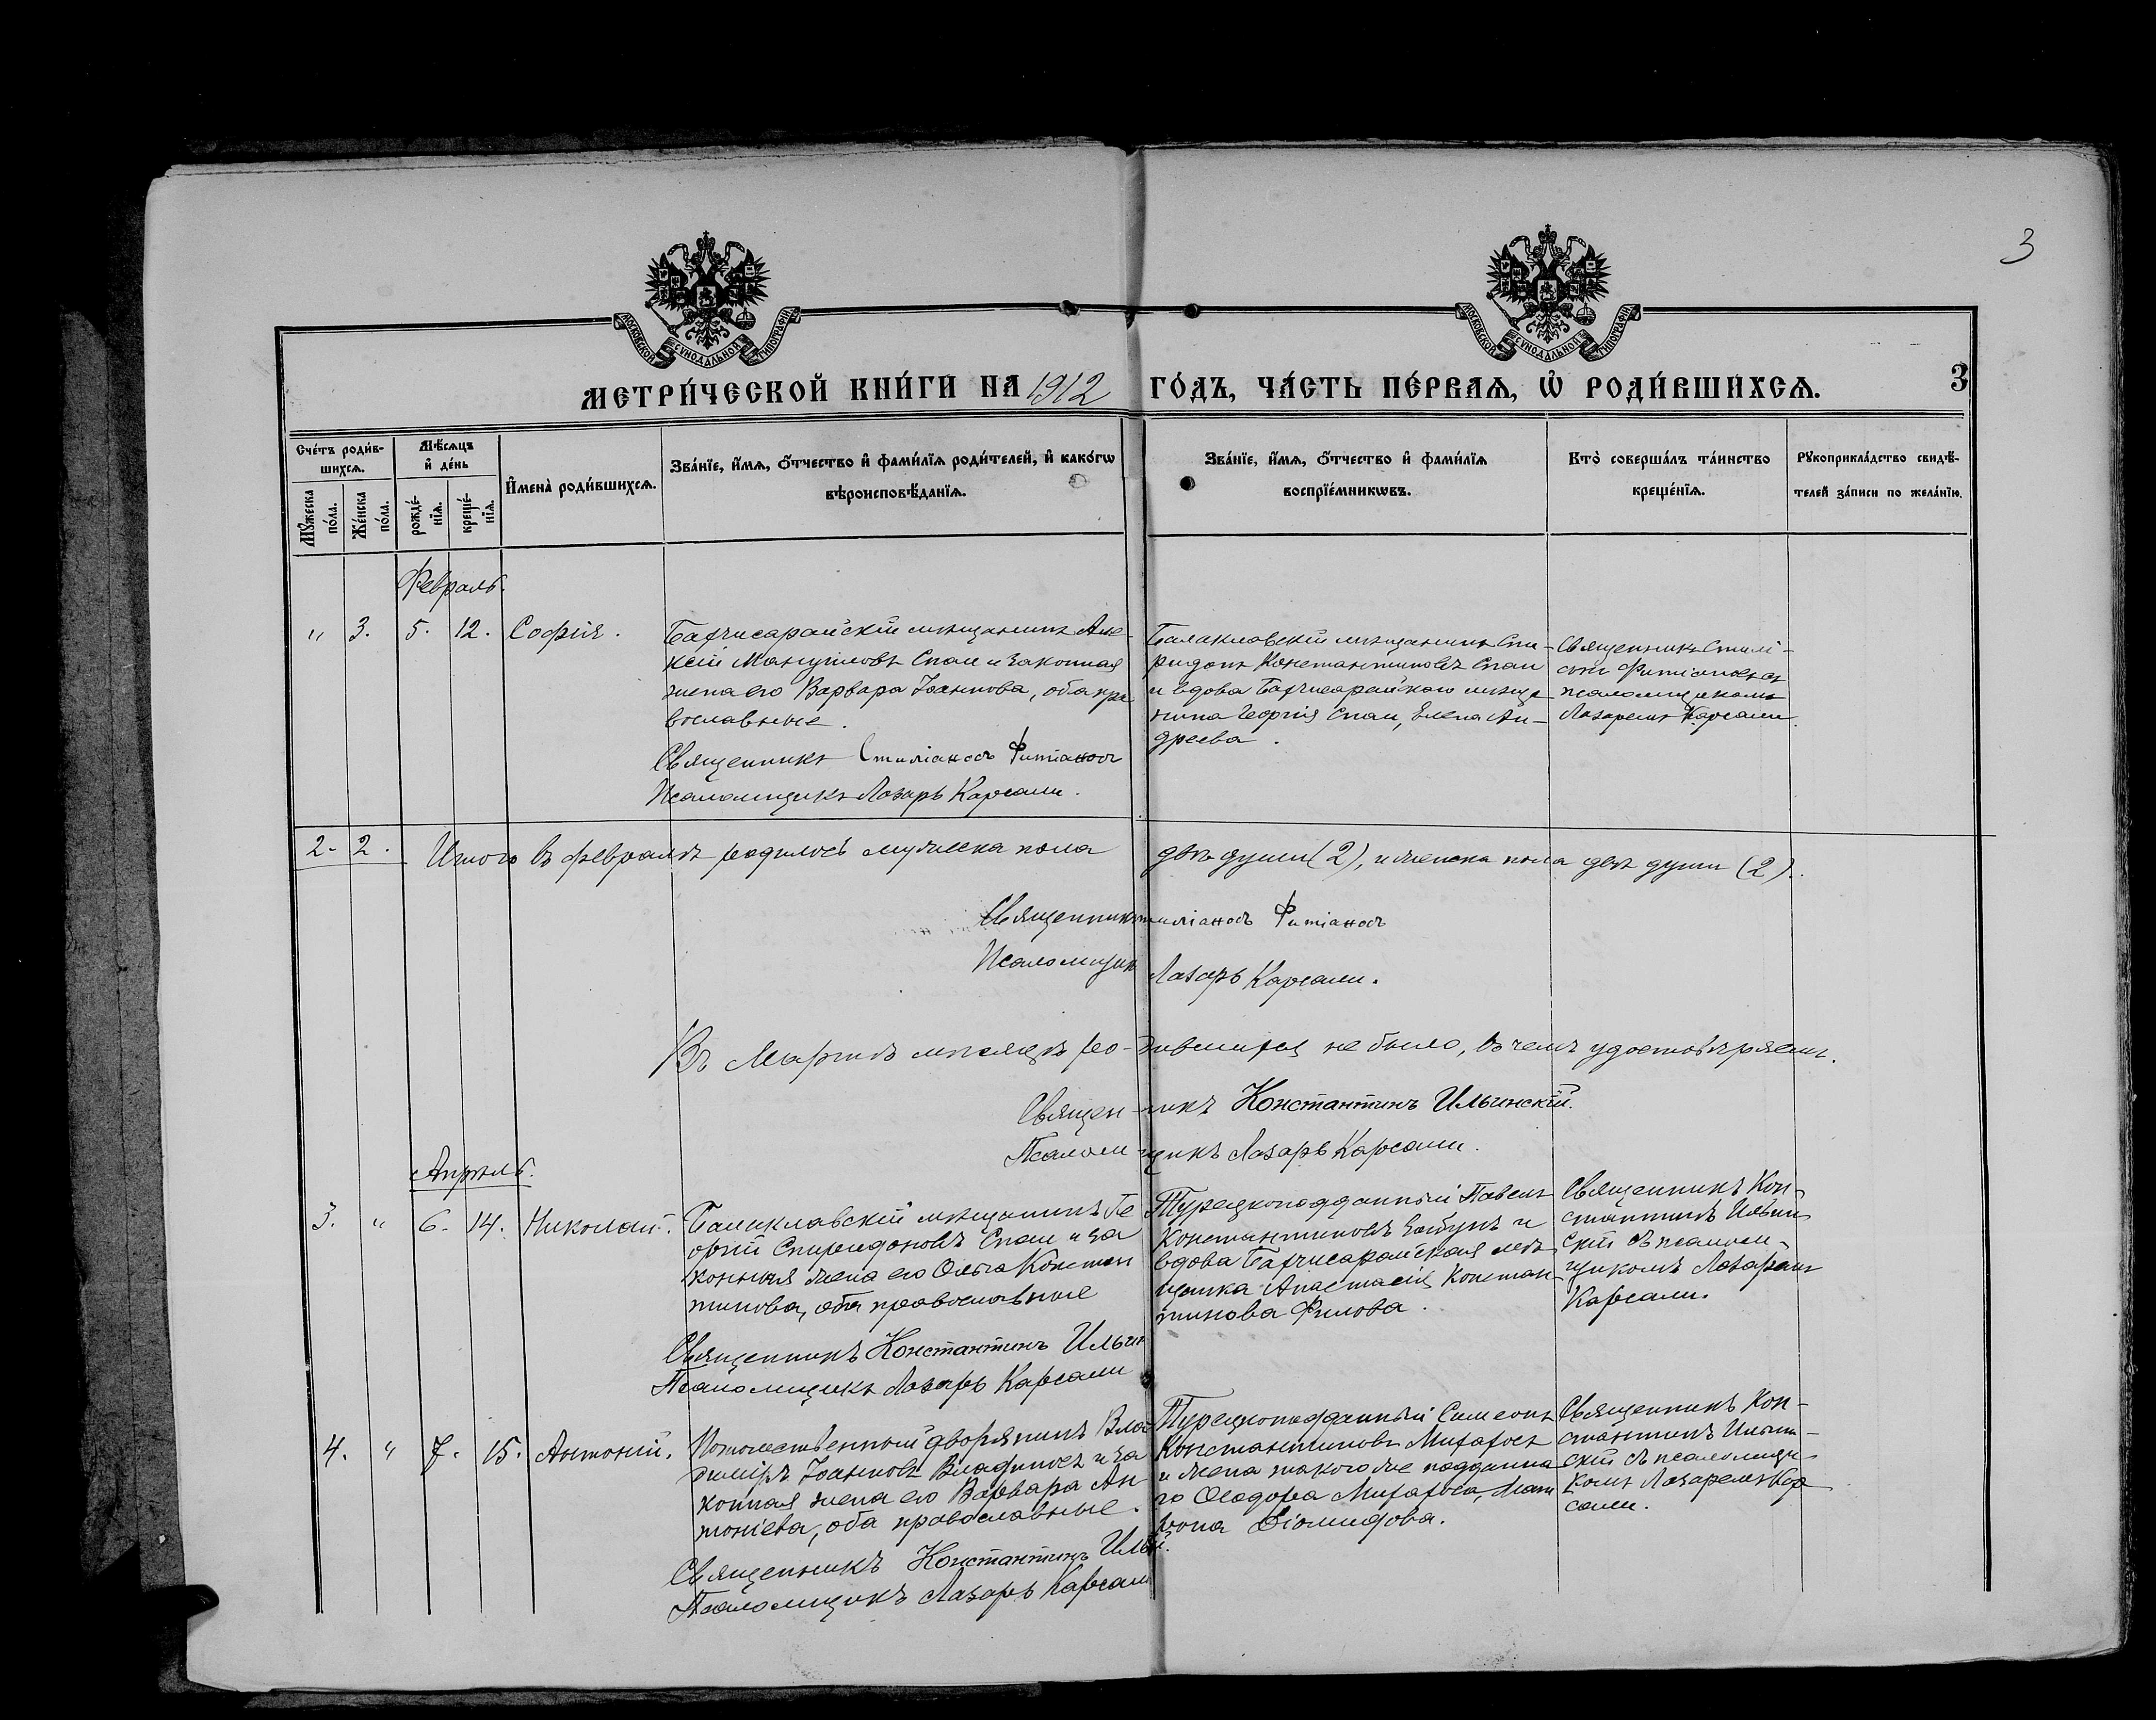 3
МОСКОВСКОЙ СѴНОДАЛЬНОЙ ТИПОГРАФІИ
МОСКОВСКОЙ СѴНОДАЛЬНОЙ ТИПОГРАФІИ
МЕТРИ́ЧЕСКОЙ КНИ́ГИ НА 1912 ГО́ДЪ, ЧА́СТЬ ПЕ́РВАѦ, Ѡ҆ РОДИ́ВШИХСѦ. 3
Сче́тъ роди́в-
шихсѧ.
Мꙋ́жеска по́ла.
Же́нска по́ла.
Мѣ́сѧцъ
и҆ де́нь
рожде́-
нїѧ.
креще́-
нїѧ.
И҆мена̀ роди́вшихсѧ.
Зва́нїе, и҆́мѧ, ѻ҆́тчество и҆ фами́лїѧ роди́телей, и҆ како́гѡ
вѣроисповѣ́данїѧ.
Зва́нїе, и҆́мѧ, ѻ҆́тчество и҆ фами́лїѧ
воспрїе́мникѡвъ.
Кто̀ соверша́лъ та́инство
креще́нїѧ.
Рꙋкоприкла́дство свидѣ́-
телей за́писи по жела́нїю.
Февраль.
" 3. 5. 12. Софія.
Бахчисарайскій мѣщанинъ Але-
ксій Мануиловъ Спаи и законная
жена его Варвара Іоаннова, оба пра
вославные.
Священникъ Стиліаносъ Фитіаносъ
Псаломщикъ Лазарь Карсали.
Балаклавскій мѣщанинъ Спи-
ридонъ Константиновъ Спаи
и вдова Бахчисарайскаго мѣща
нина Георгія Спаи, Елена Ан-
дреева.
Священникъ Стилі-
онъ Фитіаносъ съ
псаломщикомъ
Лазаремъ Карсали.
2. 2. Итого въ февралѣ родилось мужеска пола двѣ души (2), и женска пола двѣ души (2).
Священникъ Стиліаносъ Фитіаносъ
Псаломщик Лазарь Карсали.
Въ Мартѣ мѣсяцѣ родившихся не было, въ чемъ удостовѣряемъ.
Священникъ Константинъ Ильинскій.
Псаломщикъ Лазарь Карсали.
Апрѣль.
3. " 6. 14. Николай.
Балаклавскій мѣщанинъ Ге
оргій Спиридоновъ Спаи и за
конная жена его Ольга Констан
тинова, оба православные
Священникъ Константинъ Ильин
Псаломщикъ Лазарь Карсали
Турецкоподданный Павелъ
Константиновъ и
вдова Бахчисарайская мѣ
щанка Анастасія Констан
тинова Филова.
Священникъ Кон-
стантинъ Ильин
скій съ псалом-
щикомъ Лазаремъ
Карсали.
4. " 7. 15. Антоній.
Потомственный дворянинъ Вла
диміръ Іоанновъ и за
конная жена его Варвара Ан
тоніева, оба православные.
Священникъ Константинъ Ильи
Псаломщикъ Лазарь Карсали
Турецкоподданный Симеонъ
Константиновъ
и жена такого же поддана
го Ѳеодора Мат
рона Діомидова.
Священникъ Кон-
стантинъ Ильин-
скій съ псаломщи-
комъ Лазаремъ Кар
сали.